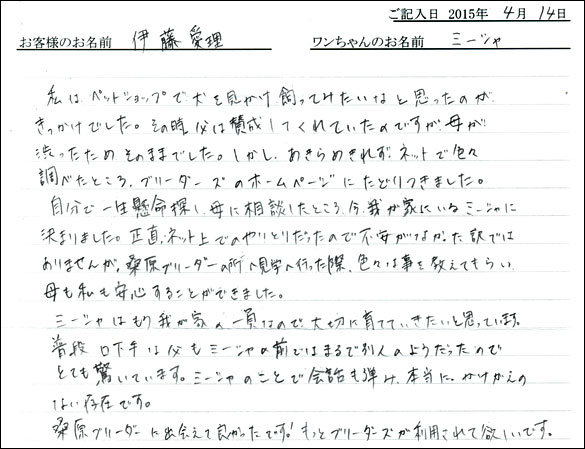 ご記入日 2015年 4月 14日
お客様のお名前 伊藤 愛理 ワンちゃんのお名前 ミーシャ
私はペットショップで犬を見かけ飼ってみたいなと思ったのが
きっかけでした。その時父は賛成してくれていたのですが母が
渋ったためそのままでした。しかし、あきらめきれず、ネットで色々
調べたところ、ブリーダーズのホームページにたどりつきました。
自分で一生懸命探し、母に相談したところ、今、我が家にいるミーシャに
決まりました。正直、ネット上でのやりとりだったので不安がなかった訳では
ありませんが、桑原ブリーダーの所へ見学へ行った際、色々な事を教えてもらい、
母も私も安心することができました。
ミーシャはもう我が家の一員なので大切に育てていきたいと思っています。
普段口下手な父もミーシャの前ではまるで別人のようだったので
とても驚いています。ミーシャのことで会話も弾み、本当に、かけがえの
ない存在です。
桑原ブリーダーに出会えて良かったです!もっとブリーダーズが利用されて欲しいです。